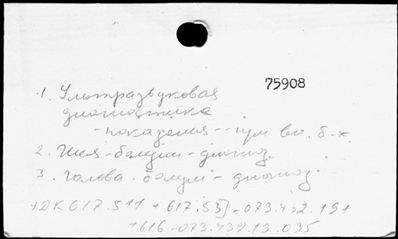 75908
1. Ультразвуковая
диагностика
- показания -- при вн. б-х
2. Шея - болезни - диагноз.
3. Голова - болезни - диагноз.
УДК 617.511 + 617.53] - 073.432.19 +
+ 616 - 073.432.19.035